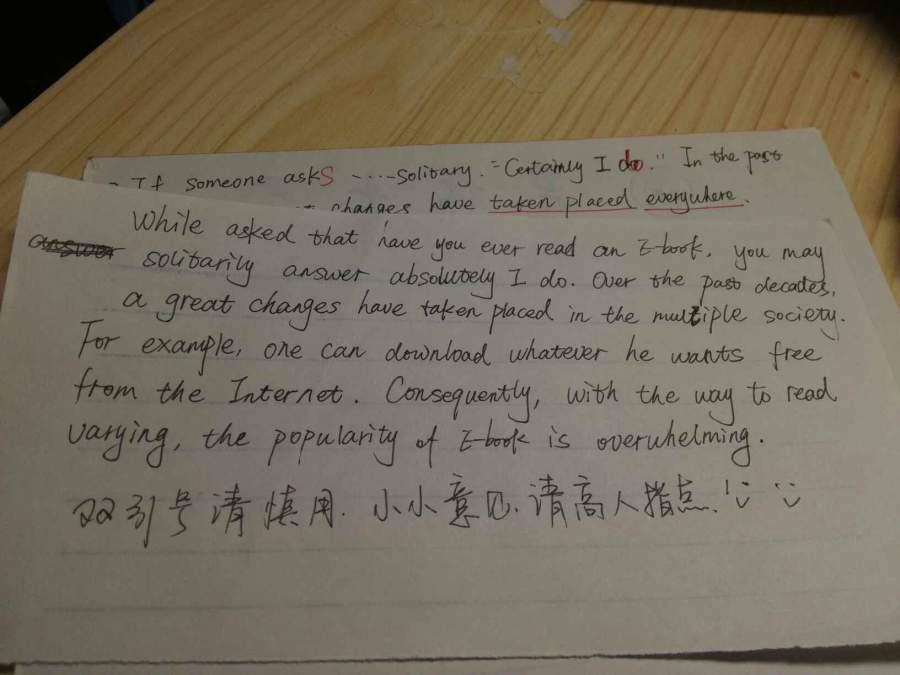 If someone asks ----Solitary. "Certainly I do." In the past
changes have taken placed everywhere.
While asked that have you ever read an E-book, you may
solitarily answer absolutely I do. Over the past decades,
a great changes have taken placed in the multiple society.
For example, one can download whatever he wants free
from the Internet. Consequently, with the way to read
varying, the popularity of E-book is overwhelming.
双引号请慎用. 小小意见. 请高人指点!